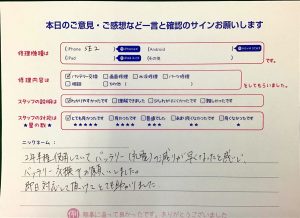 本日のご意見・ご感想など一言と確認のサインお願いします
修理機種は
iPhone SE2
Android
iPad
その他
修理内容は
バッテリー交換
画面修理
水没修理
パーツ修理
相談
その他
としてもらいました。
スタッフの説明は
わかりやすかったです
理解できました
少しわかりにくかったです
難しかったです
スタッフの対応は
★星の数★
とても良かったです
良かったです
普通でした
あまり良くなかったです
良くなかったです
ニックネーム：
2年半程使用していて バッテリー(充電)の減りが早くなったと感じ、
バッテリー交換をお願いしました。
即日対応して頂けて とても助かりました。
ありがとうございました